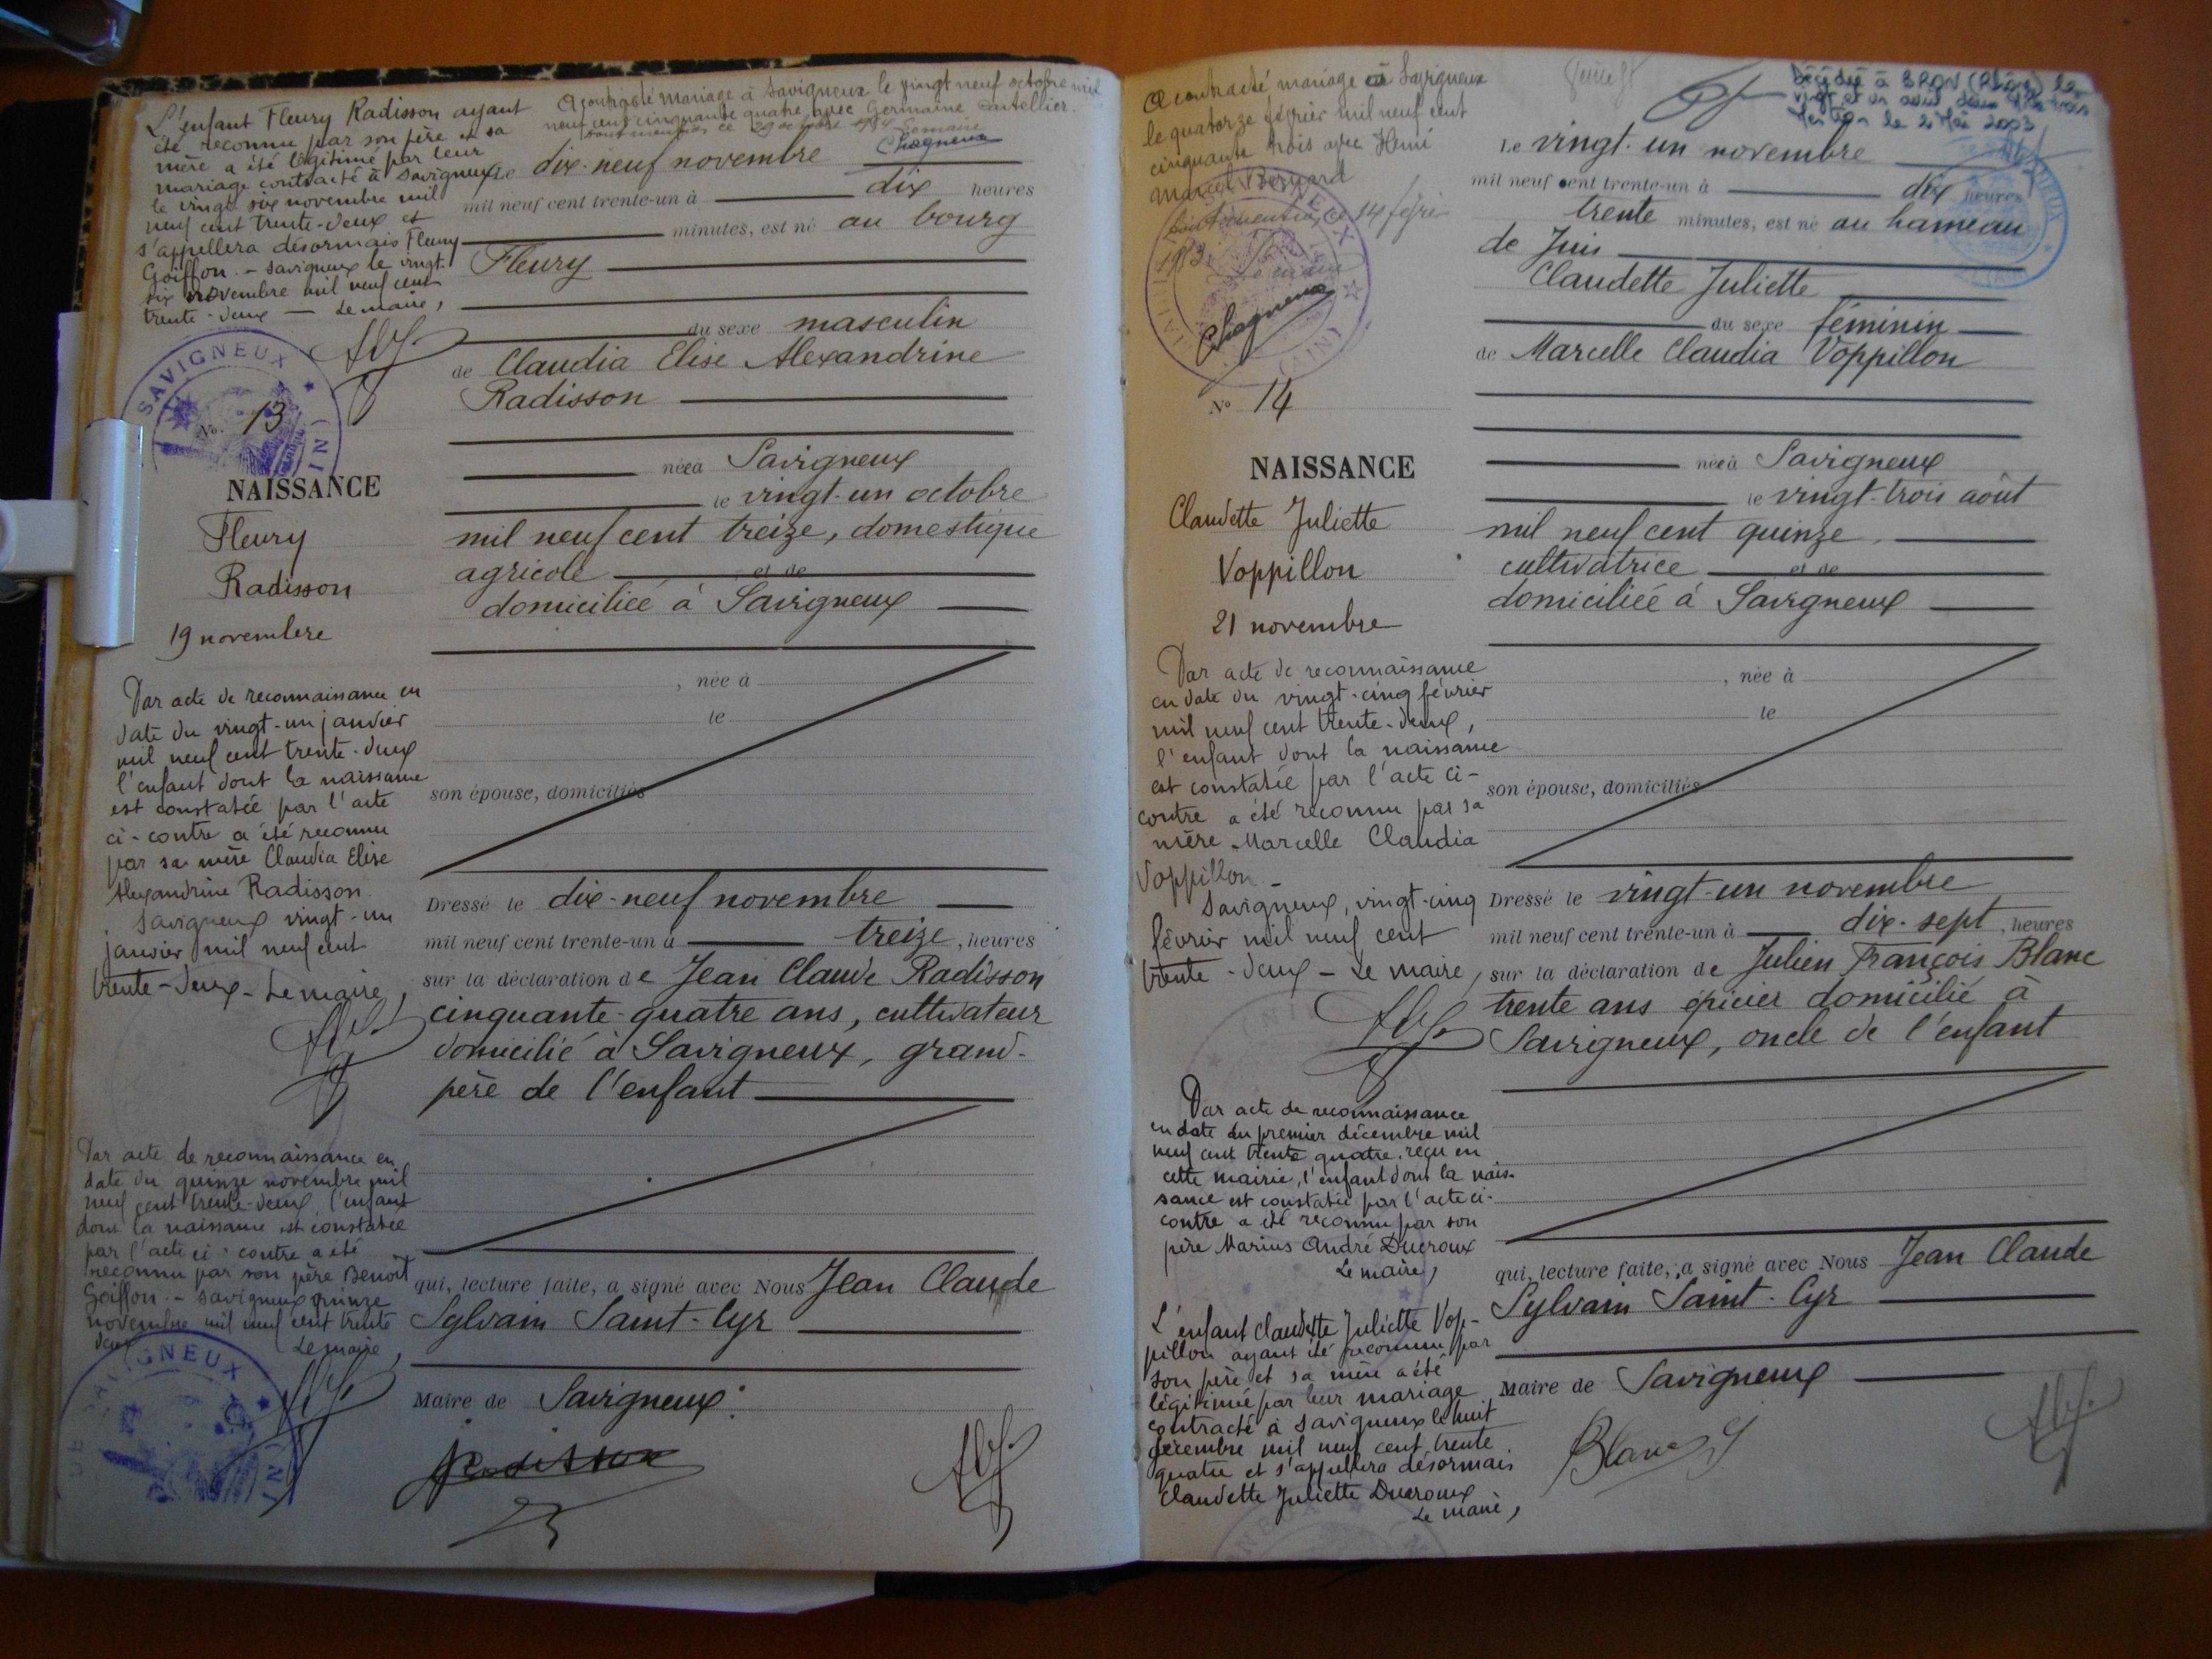 L'enfant Fleury Radisson ayant
été reconnu par son père et sa
mère a été légitimé par leur
mariage contracté à Savigneux
le vingt six novembre mil
neuf cent trente-deux et
s'appellera désormais Fleury
Goiffon. - Savigneux le vingt-
six novembre mil neuf cent
trente-deux — Le maire,
A contracté mariage à Savigneux le vingt neuf octobre mil
neuf cent cinquante quatre avec Germaine
ce 29 octobre 1954
Chagneux
SAVIGNEUX
(AIN)
No. 13
NAISSANCE
Fleury
Radisson
19 novembre
Par acte de reconnaissance en
date du vingt-un janvier
mil neuf cent trente-deux
l'enfant dont la naissance
est constatée par l'acte
ci-contre a été reconnu
par sa mère Claudia Elise
Alexandrine Radisson
Savigneux vingt-un
janvier mil neuf cent
trente-deux - Le maire,
Par acte de reconnaissance en
date du quinze novembre mil
neuf cent trente-deux, l'enfant
dont la naissance est constatée
par l'acte ci-contre a été
reconnu par son père Benoît
Goiffon. - Savigneux quinze
novembre mil neuf cent trente
deux Le maire,
Le dix-neuf novembre
mil neuf cent trente-un à dix heures
minutes, est né au bourg
Fleury
du sexe masculin
de Claudia Elise Alexandrine
Radisson
née à Savigneux
le vingt-un octobre
mil neuf cent treize, domestique
agricole et de
domiciliée à Savigneux
, née à
le
son épouse, domiciliés
Dressé le dix-neuf novembre
mil neuf cent trente-un à treize, heures
sur la déclaration de Jean Claude Radisson
cinquante-quatre ans, cultivateur
domicilié à Savigneux, grand-
père de l'enfant
qui, lecture faite, a signé avec Nous Jean Claude
Sylvain Saint-Cyr
Maire de Savigneux.
Radisson
A contracté mariage à Savigneux
le quatorze février mil neuf cent
cinquante trois avec Henri
Marcel Bernard
14 février
1953.
Le maire
Chagneux
(AIN)
No 14
NAISSANCE
Claudette Juliette
Voppillon
21 novembre
Par acte de reconnaissance
en date du vingt-cinq février
mil neuf cent trente-deux,
l'enfant dont la naissance
est constatée par l'acte ci-
contre a été reconnu par sa
mère Marcelle Claudia
Voppillon -
Savigneux, vingt-cinq
février mil neuf cent
trente-deux - Le maire,
Par acte de reconnaissance
en date du premier décembre mil
neuf cent trente quatre, reçu en
cette mairie, l'enfant dont la nais-
sance est constatée par l'acte ci-
contre a été reconnu par son
père Marius André Ducroux
Le maire,
L'enfant Claudette Juliette Vop-
pillon ayant été reconnu par
son père et sa mère a été
légitimée par leur mariage
contracté à Savigneux le huit
décembre mil neuf cent trente
quatre et s'appellera désormais
Claudette Juliette Ducroux
Le maire,
Décédée à BRON (Rhône) le
vingt et un deux mille trois
2003
Le vingt-un novembre
mil neuf cent trente-un à dix heures
trente minutes, est né au hameau
de Juis
Claudette Juliette
du sexe féminin
de Marcelle Claudia Voppillon
née à Savigneux
le vingt-trois août
mil neuf cent quinze,
cultivatrice et de
domiciliée à Savigneux
, née à
le
son épouse, domiciliés
Dressé le vingt-un novembre
mil neuf cent trente-un à dix-sept, heures
sur la déclaration de Julien François Blanc
trente ans épicier domicilié à
Savigneux, oncle de l'enfant
qui, lecture faite, a signé avec Nous Jean Claude
Sylvain Saint-Cyr
Maire de Savigneux
Blanc J